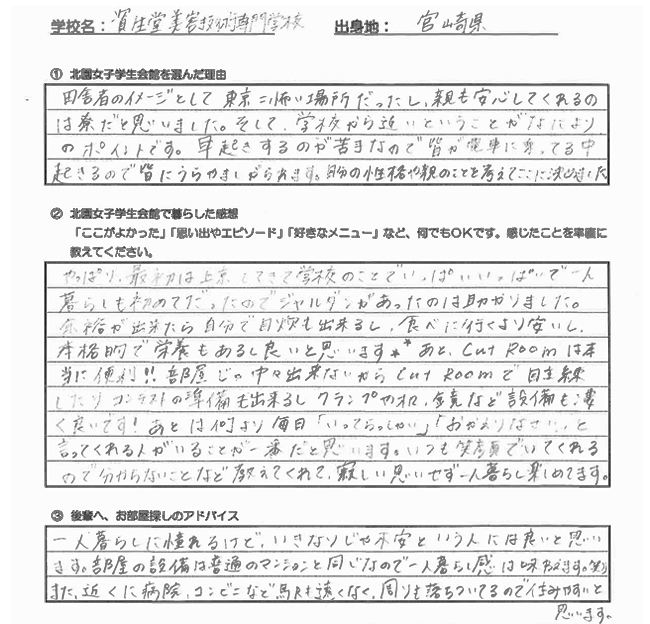 学校名：資生堂美容技術専門学校 出身地：宮崎県
① 北園女子学生会館を選んだ理由
田舎者のイメージとして東京=怖い場所だったし、親も安心してくれるの
は寮だと思いました。そして、学校から近いということがなにより
のポイントです。早起きするのが苦手なので皆が電車に乗ってる中
起きるので皆にうらやましがられます。自分の性格や親のことを考えてここに決めました
② 北園女子学生会館で暮らした感想
「ここがよかった」「思い出やエピソード」「好きなメニュー」など、何でもOKです。感じたことを率直に
教えてください。
やっぱり、最初は上京してきて学校のことでいっぱいいっぱいで一人
暮らしも初めてだったのでジャルダンがあったのは助かりました。
余裕が出来たら自分で自炊も出来るし、食べに行くより安いし、
本格的で栄養もあるし良いと思います** あと、Cut Roomは本
当に便利!! 部屋じゃ中々出来ないからCut Roomで自主練
したりコンテストの準備も出来るしクランプや机、鏡など設備も凄
く良いです! あとは何より毎日「いってらっしゃい」「おかえりなさい」と
言ってくれる人がいることが一番だと思います。いつも笑顔でいてくれる
ので分からないことなど教えてくれて、寂しい思いせず一人暮らし楽しめてます。
③ 後輩へ、お部屋探しのアドバイス
一人暮らしに憧れるけど、いきなりじゃ不安という人には良いと思い
ます。部屋の設備は普通のマンションと同じなので一人暮らし感は味わえます。(笑)
また、近くに病院、コンビニなど駅も遠くなく、周りも落ちついてるので住みやすいと
思います。